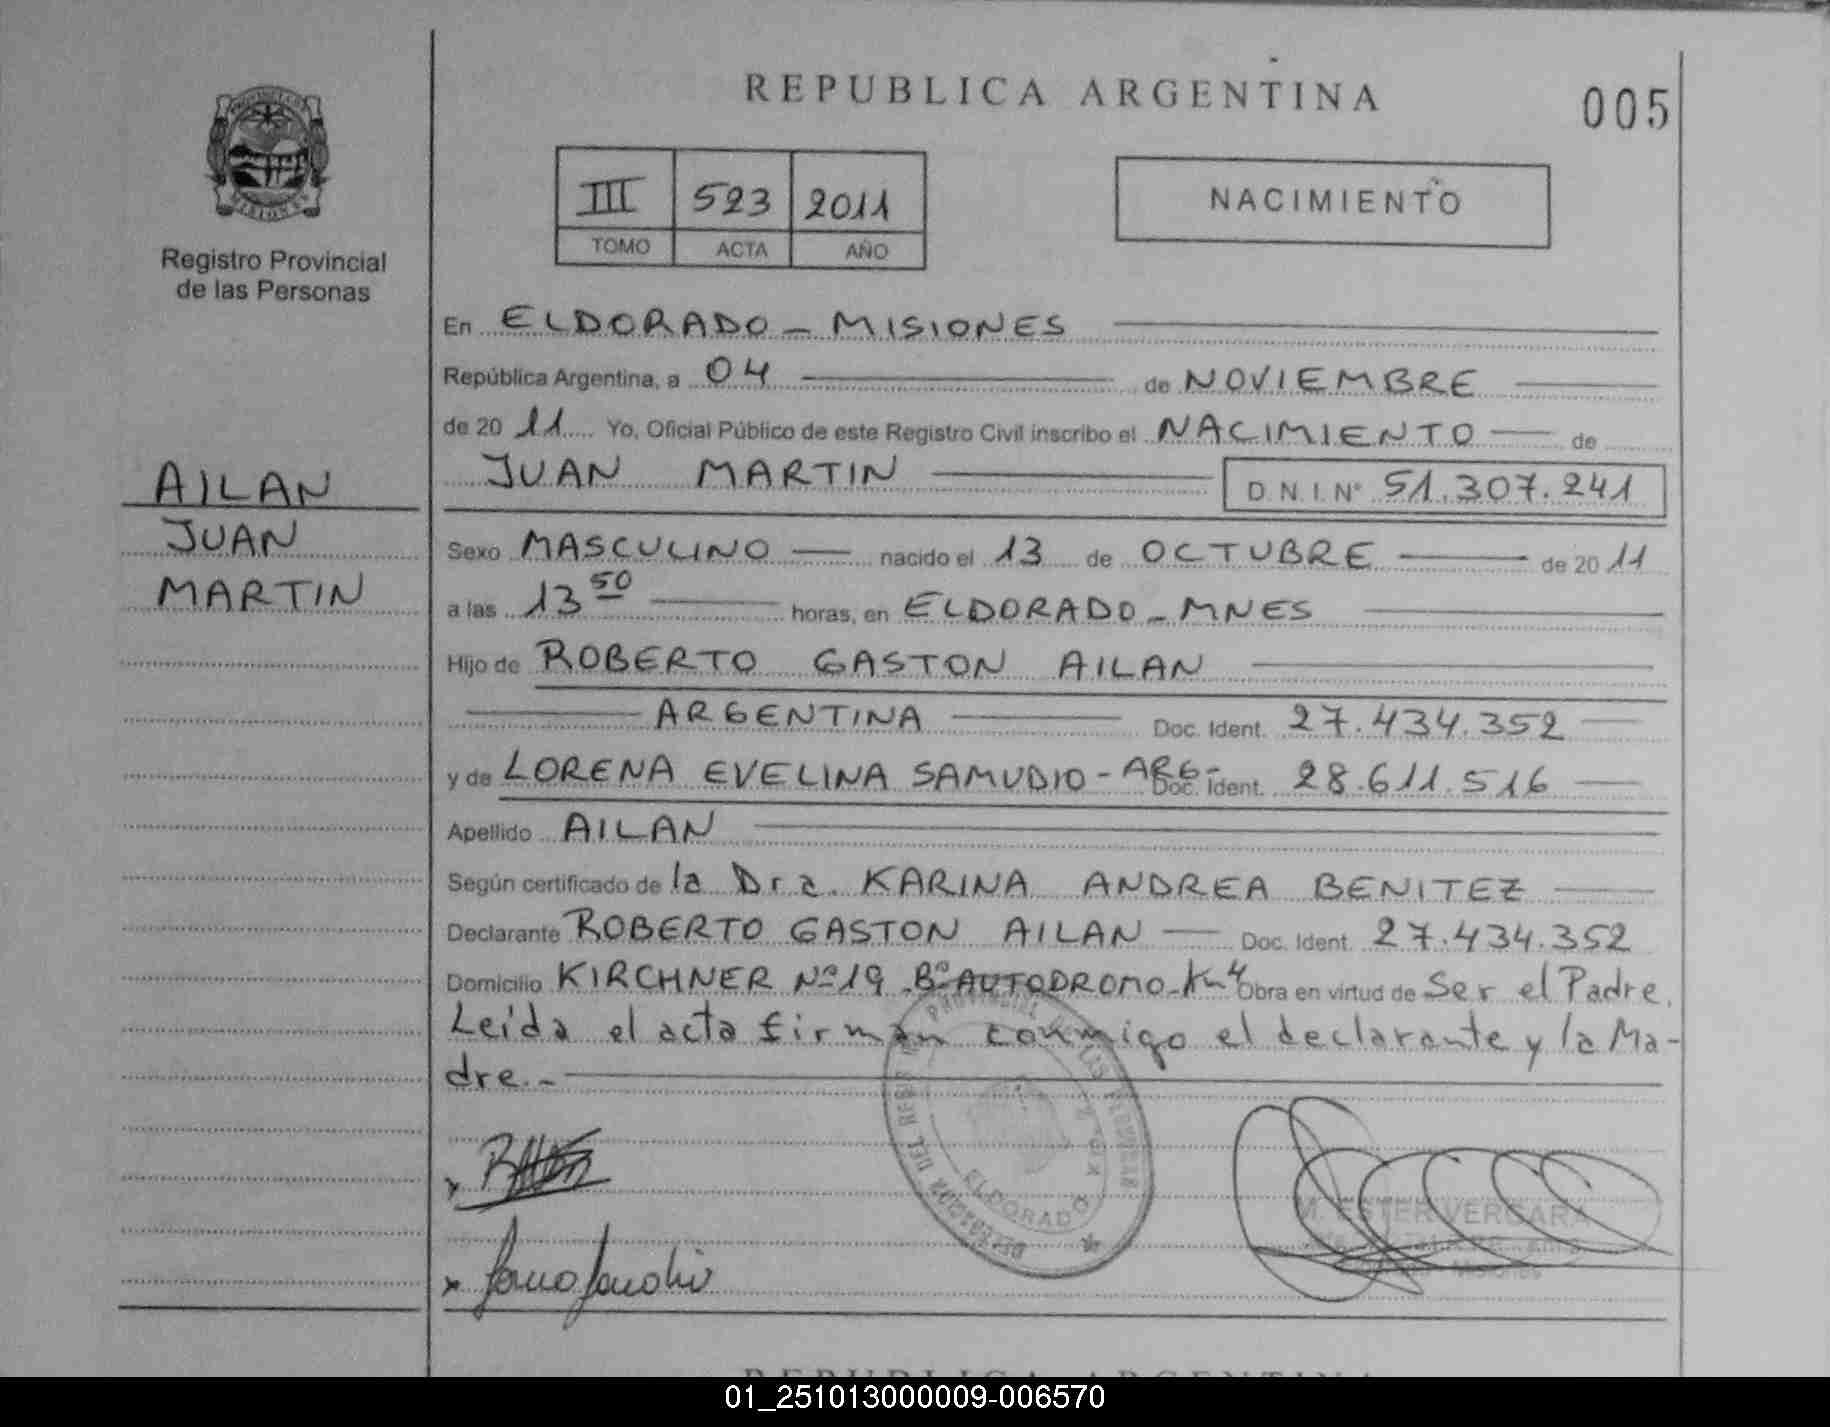 REPUBLICA ARGENTINA
005
PROVINCIA DE
MISIONES
Registro Provincial
de las Personas
III 523 2011
TOMO ACTA AÑO
NACIMIENTO
En ELDORADO - MISIONES
República Argentina, a 04 de NOVIEMBRE
de 20 11 Yo, Oficial Público de este Registro Civil inscribo el NACIMIENTO de
JUAN MARTIN D.N.I. Nº 51.307.241
AILAN
JUAN
MARTIN
Sexo MASCULINO nacido el 13 de OCTUBRE de 20 11
a las 13 50 horas, en ELDORADO - MNES
Hijo de ROBERTO GASTON AILAN
ARGENTINA Doc. Ident. 27.434.352
y de LORENA EVELINA SAMUDIO - ARG- Doc. Ident. 28.611.516
Apellido AILAN
Según certificado de la Dra. KARINA ANDREA BENITEZ
Declarante ROBERTO GASTON AILAN Doc. Ident. 27.434.352
Domicilio KIRCHNER Nº 19 Bº AUTODROMO - Km 4 Obra en virtud de Ser el Padre.
Leida el acta firman conmigo el declarante y la Ma-
dre.-
ELDORADO
M. ESTER VERGARA
Misiones
REPUBLICA ARGENTINA
01_251013000009-006570